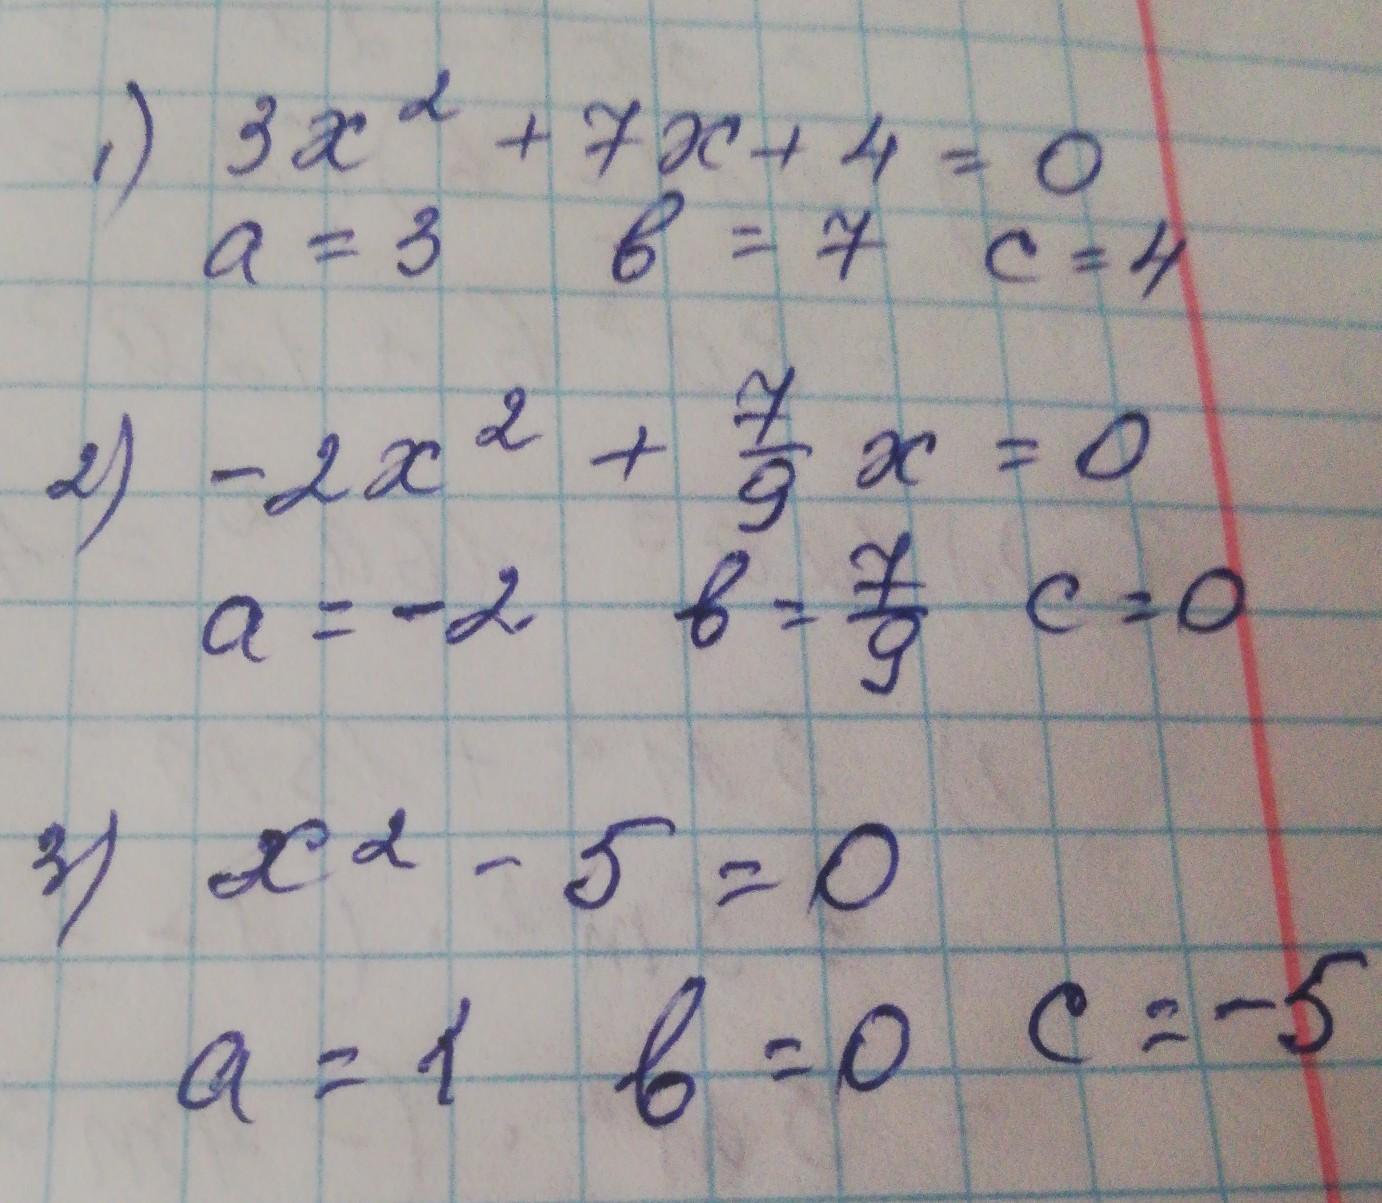 1) 3x² + 7x + 4 = 0
a = 3 в = 7 c = 4
2) -2x² + 7/9 x = 0
a = -2 в = 7/9 c = 0
3) x² - 5 = 0
a = 1 в = 0 c = -5